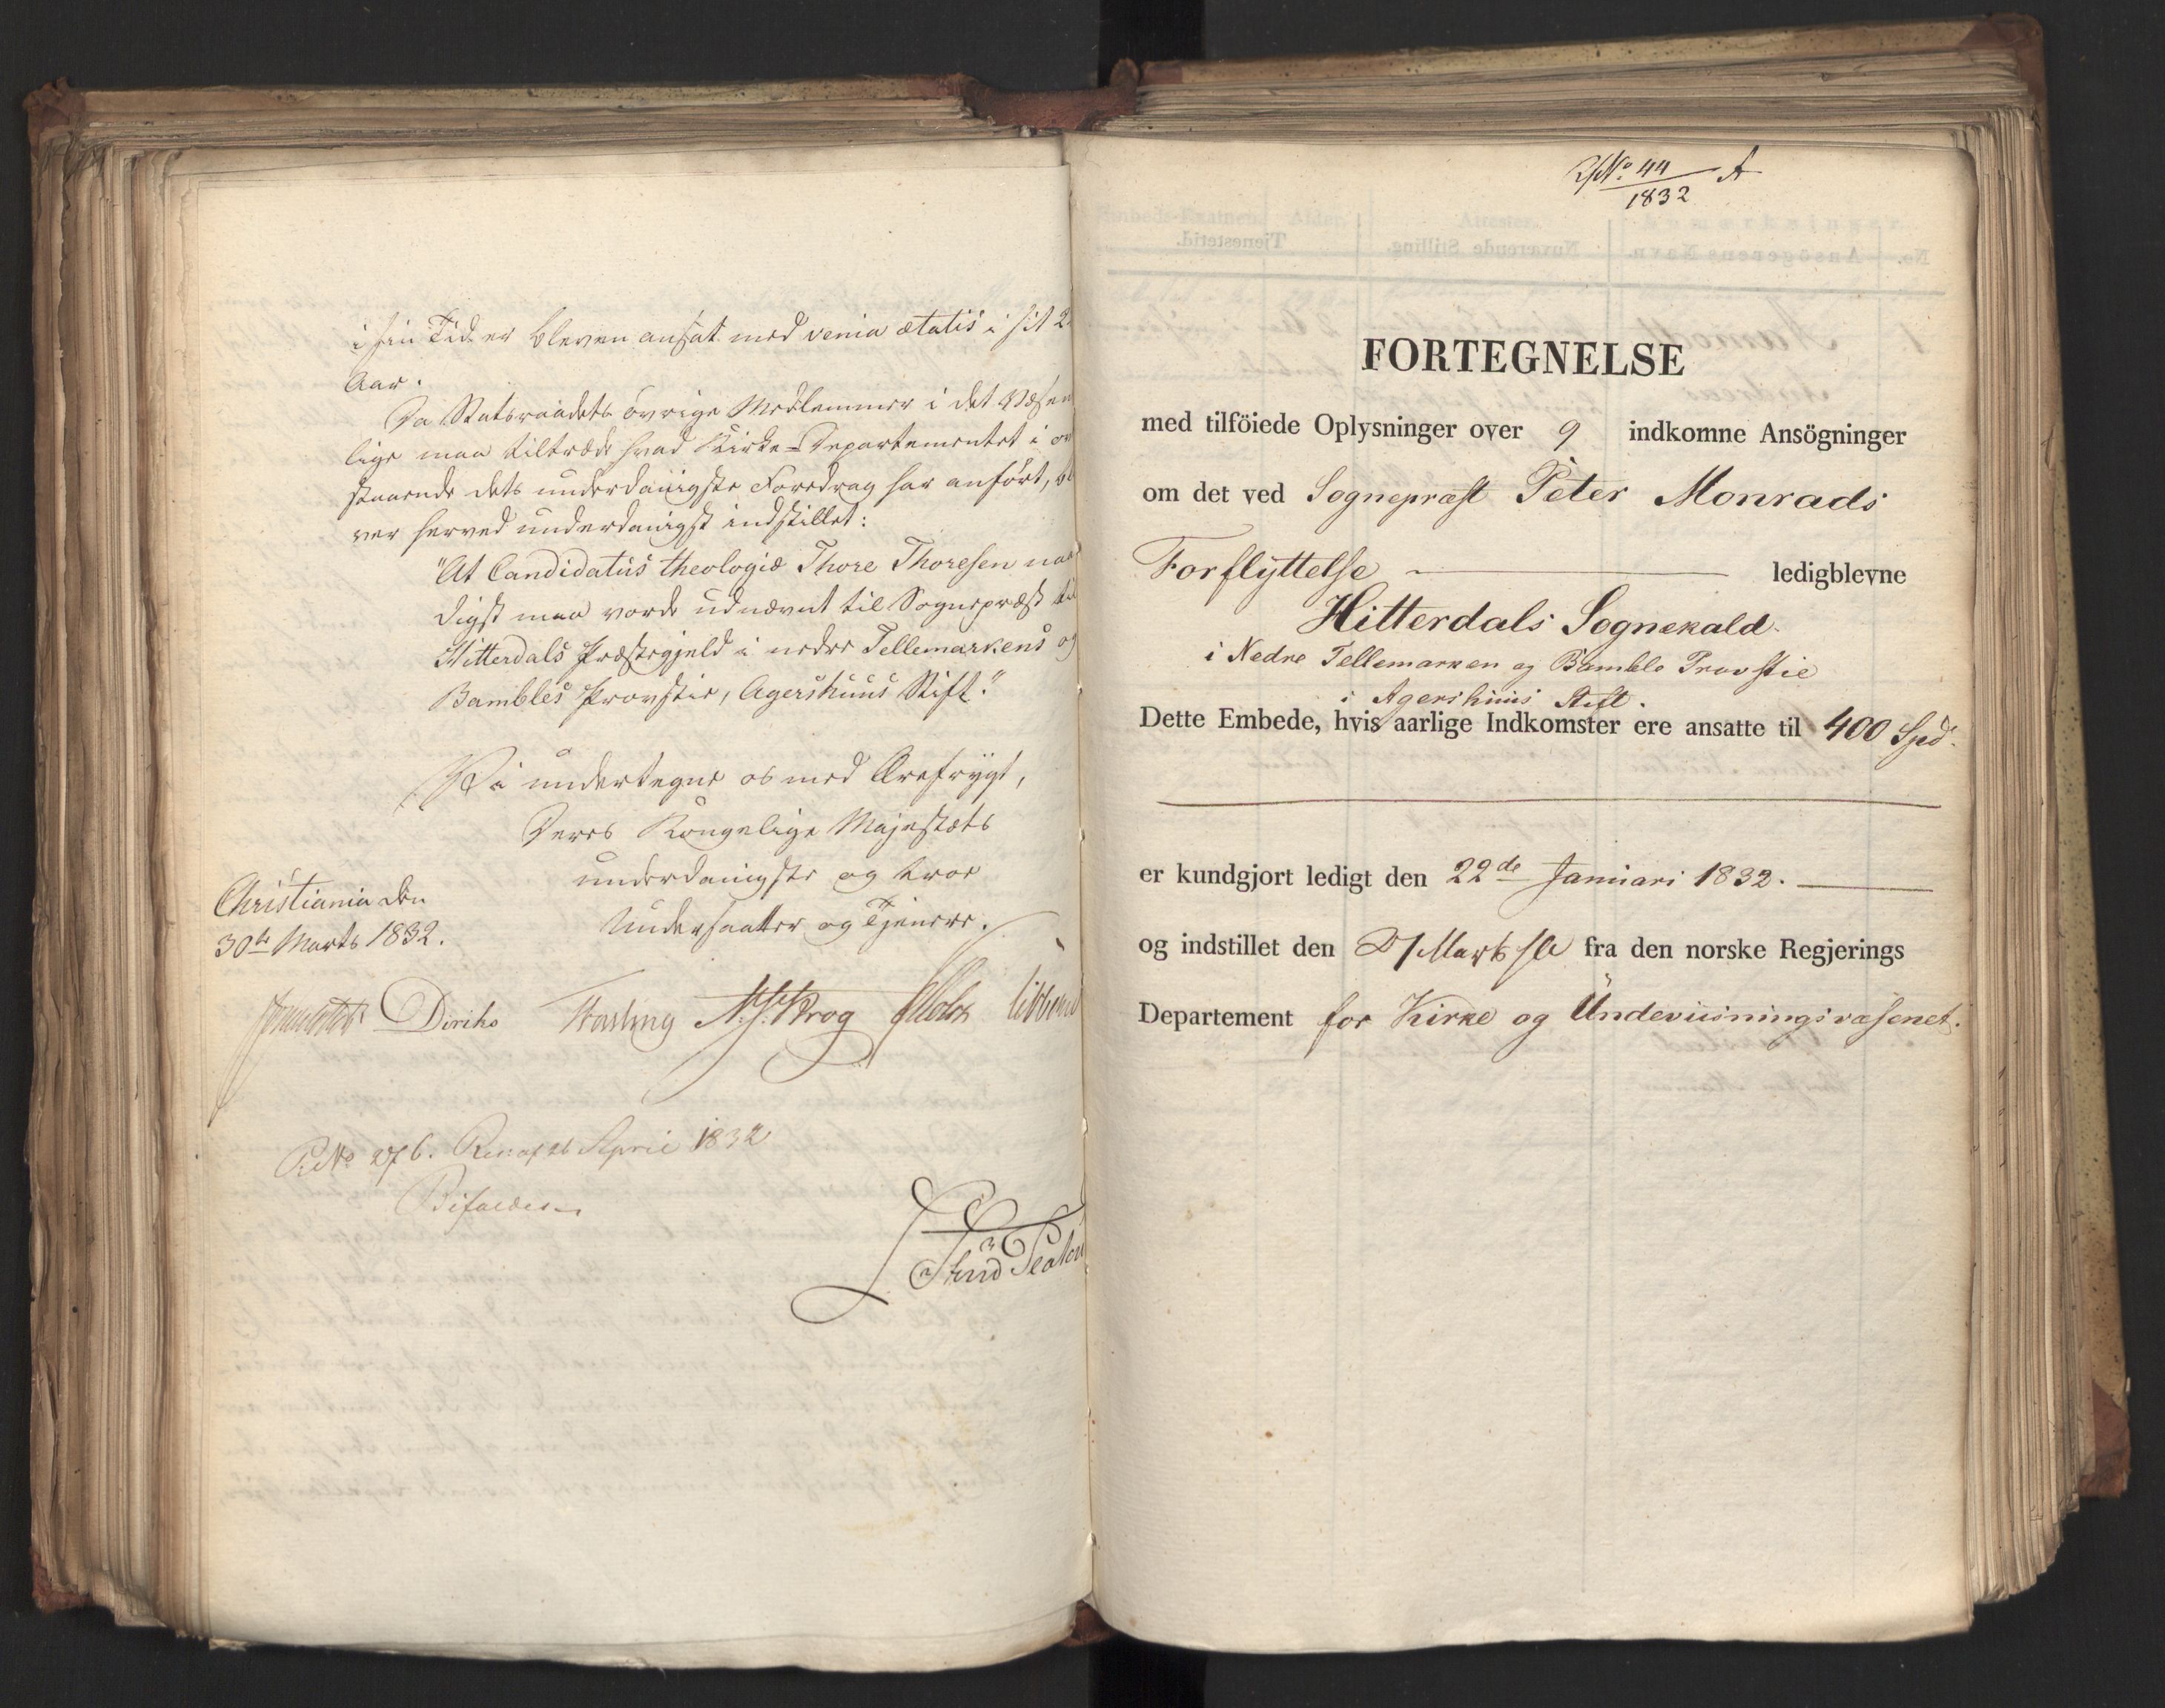 i sin Tid er bleven ansat med venia ætatis i sit 2
Aar.
Da Statsraadets övrige Medlemmer i det Væsent
lige maa tiltræde hvad Kirke-Departementet i ov
staaende dets underdanigste Foredrag har anfört, bli
ver herved underdanigst indstillet:
"At Candidatus theologiæ Thore Thoresen naa
digst maa vorde udnævnt til Sognepræst til
Hitterdals Præstegjeld i nedre Tellemarkens og
Bambles Provstie, Agershuus Stift."
Vi undertegne os med Ærefrygt,
Deres Kongelige Majestæts
underdanigste og troe
Undersaatter og Tjenere.
Christiania den
30te Marts 1832.
Diriks Fasting Krog
April 1832
Bifaldes
No. 44 A
1832
FORTEGNELSE
med tilföiede Oplysninger over 9 indkomne Ansögninger
om det ved Sognepræst Peter Monrads
Forflyttelse ledigblevne
Hitterdals Sognekald
i Nedre Tellemarken og Bamble Provstie
i Agershuus Stift.
Dette Embede, hvis aarlige Indkomster ere ansatte til 400 Spd.
er kundgjort ledigt den 22de Januari 1832.
og indstillet den Marts fra den norske Regjerings
Departement for Kirke og Underviisningsvæsenet.